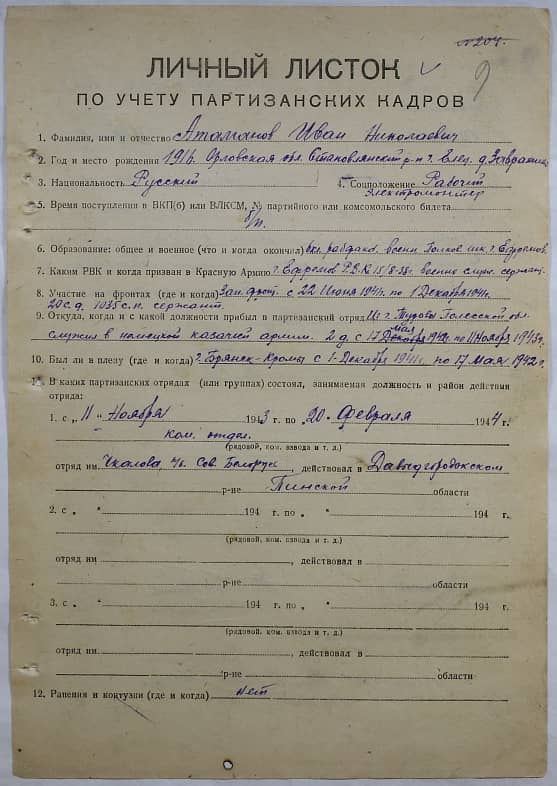 № 204.
9
ЛИЧНЫЙ ЛИСТОК
ПО УЧЕТУ ПАРТИЗАНСКИХ КАДРОВ
1. Фамилия, имя и отчество Атаманов Иван Николаевич
2. Год и место рождения 1916. Орловская обл. Становлянский р-н г. Елец. д.
3. Национальность Русский 4. Соцположение Рабочий
электромонтер
5. Время поступления в ВКП(б) или ВЛКСМ, № партийного или комсомольского билета
б/п.
6. Образование: общее и военное (что и когда окончил) рабфак. военн. Полков. шк. г. Ефремов.
7. Каким РВК и когда призван в Красную Армию г. Ефремов Р.В.К 15/8-38г. военно служ. сержант.
8. Участие на фронтах (где и когда) Зап. фронт. с 22 Июня 1941г. по 1 Декабря 1941г.
20 с.д. 1035 с.п. сержант.
9. Откуда, когда и с какой должности прибыл в партизанский отряд Из г. Туровы Полесской обл.
служил в немецкой казачей армии. 2 д. с 17 мая Декабря 1942г. по 11 Ноября 1943г.
10. Был ли в плену (где и когда) г. Брянск-Кромы с 1-Декабря 1941г. по 17 Мая 1942г.
11. В каких партизанских отрядах (или группах) состоял, занимаемая должность и район действия
отряда:
1. с „ 11 " Ноября 1943 г. по „ 20 " Февраля 1944 г.
ком. отдел.
(рядовой, ком. взвода и т. д.)
отряд им. Чкалова, Сов. Белорус, действовал в Давыдгородокском
р-не Пинской области
2. с „ " 194 г. по „ " 194 г.
(рядовой, ком. взвода и т. д.)
отряд им , действовал в
р-не области
3. с „ " 194 г. по „ " 194 г.
(рядовой, ком. взвода и т. д.)
отряд им. , действовал в
р-не области
12. Ранения и контузии (где и когда) нет